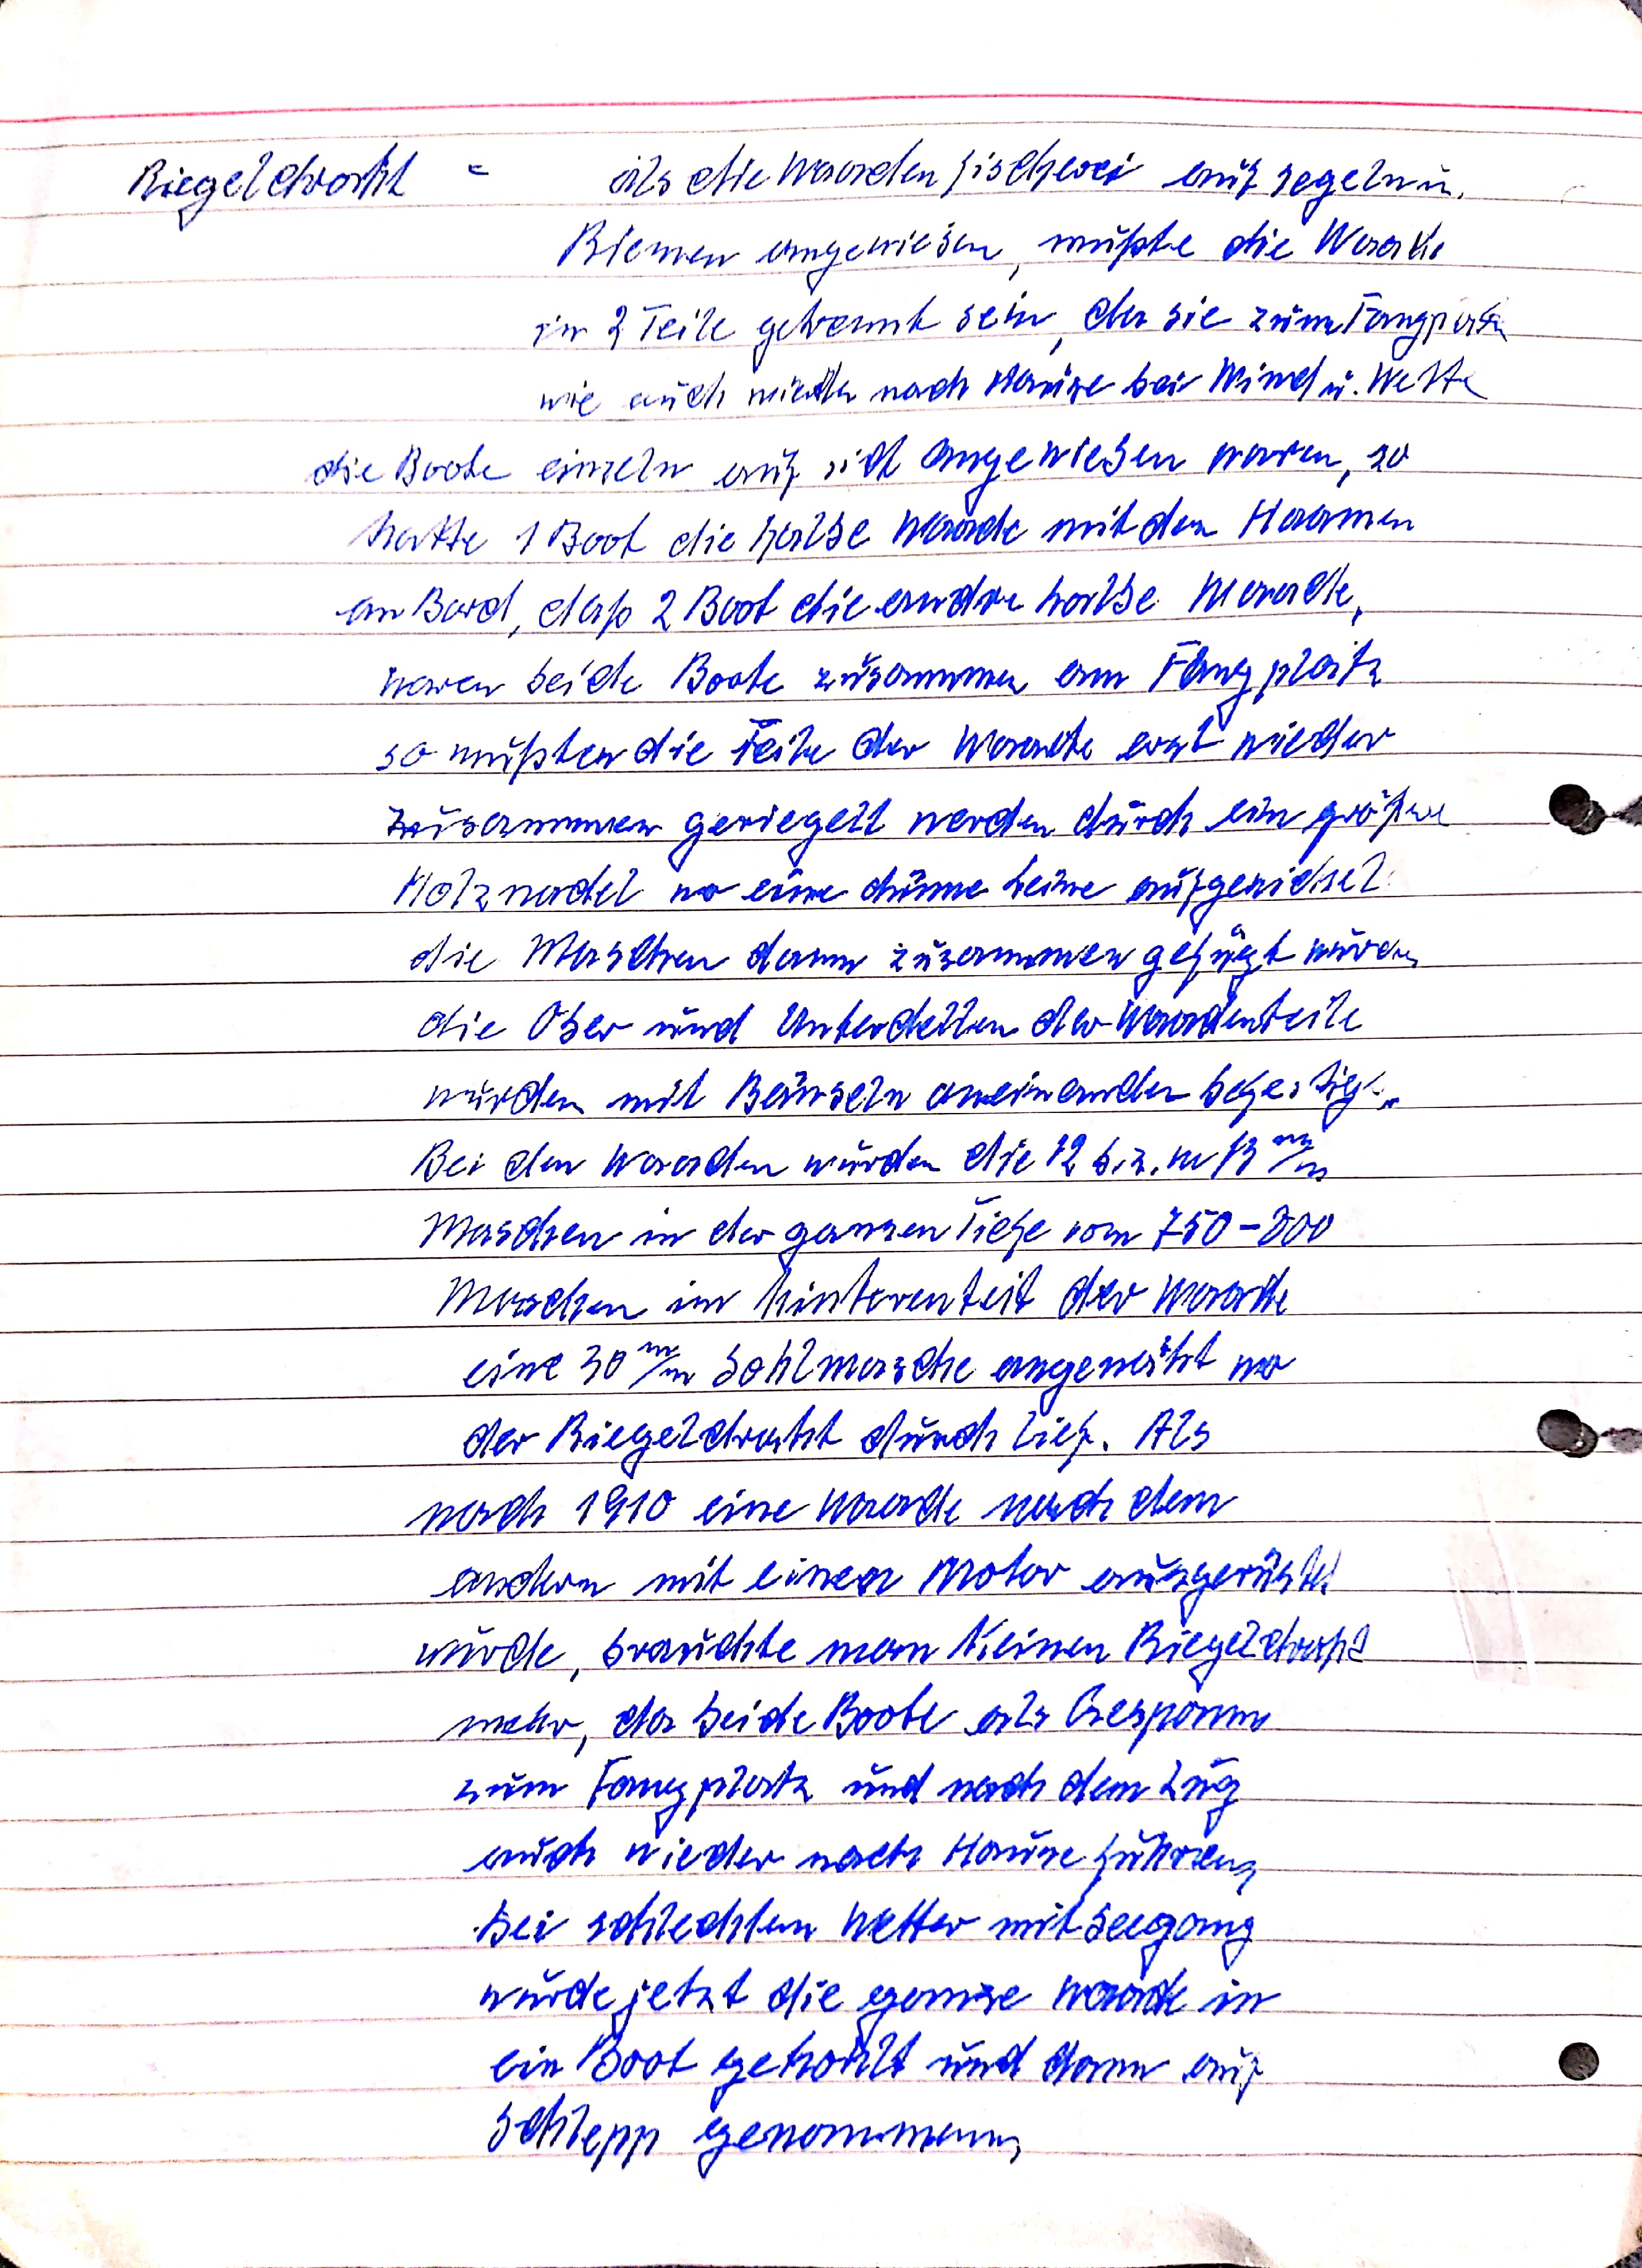 Riegeldraht - als die Waadenfischerei auf segeln u.
Riemen angewiesen, mußte die Waade
in 2 Teile getrennt sein, da sie zum Fangplatz
wie auch wieder nach Hause bei Wind u. Wetter
die Boote einzeln auf sich angewiesen waren, so
hatte 1 Boot die halbe Waade mit den Haamen
an Bord, daß 2 Boot die andre halbe Waade,
waren beide Boote zusammen am Fangplatz
so mußten die Teile der Waade erst wieder
zusammen geriegelt werden durch ein größere
Holznadel wo eine dünne Leine aufgewickelt
die Maschen dann zusammen gefügt wurden
die Ober und Unterdellen der Waadenteile
wurden mit Bänseln aneinander befestigt.
Bei den Waaden wurden die 12 bis. zu 13 m/m
Maschen in der ganzen Tiefe von 750-800
Maschen im hinterenteil der Waade
eine 30 m/m Sohlmasche angenäht wo
der Riegeldraht durch lief. Als
nach 1910 eine Waade nach dem
andern mit einen Motor ausgerüstet
wurde, brauchte man keinen Riegeldraht
mehr, da beide Boote als Gespann
zum Fangplatz und nach dem Zug
auch wieder nach Hause fuhren,
bei schlechten Wetter mit Seegang
wurde jetzt die ganze Waade in
ein Boot geholt und dann auf
Schlepp genommen,